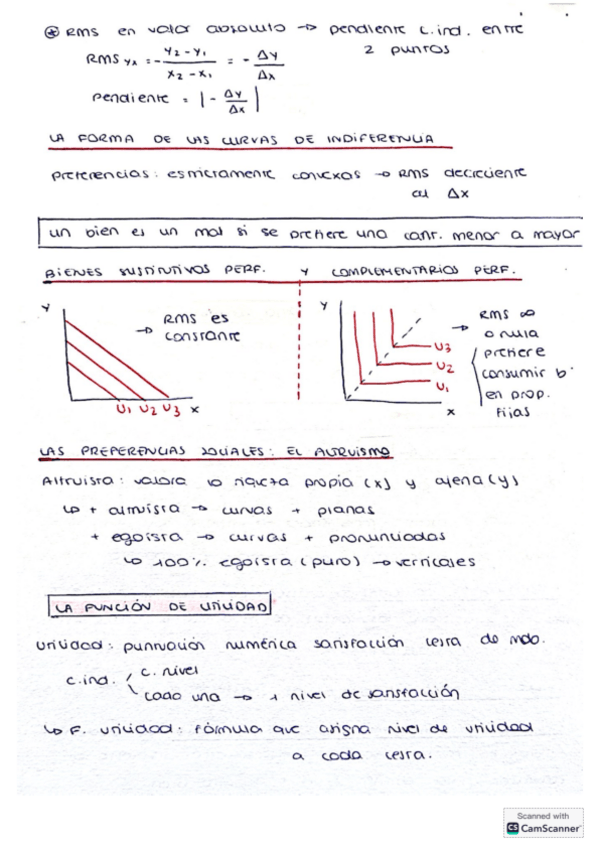 ⊛ RMS en valor absoluto → pendiente c.ind. entre
2 puntos
RMS yx = - y2 - y1 / x2 - x1 = - Δy / Δx
Pendiente = | - Δy / Δx |
LA FORMA DE LAS CURVAS DE INDIFERENCIA
Preferencias: estrictamente convexas → RMS decreciente
al Δx
Un bien es un mal si se prefiere una cant. menor a mayor
BIENES SUSTITUTIVOS PERF. Y COMPLEMENTARIOS PERF.
Y
→ RMS es
constante
U1 U2 U3 X
Y
U3
U2
U1
X
→ RMS ∞
o nula
prefiere
consumir b
en prop.
fijas
LAS PREFERENCIAS SOCIALES: EL ALTRUISMO
Altruista: valora la riqueza propia (x) y ajena (y)
↳ + altruista → curvas + planas
+ egoísta → curvas + pronunciadas
↳ 100% egoísta (puro) → verticales
LA FUNCIÓN DE UTILIDAD
Utilidad: puntuación numérica satisfacción cesta de mdo.
c.ind. c. nivel
cada una → 1 nivel de satisfacción
↳ F. utilidad: fórmula que asigna nivel de utilidad
a cada cesta.
Scanned with
CS CamScanner